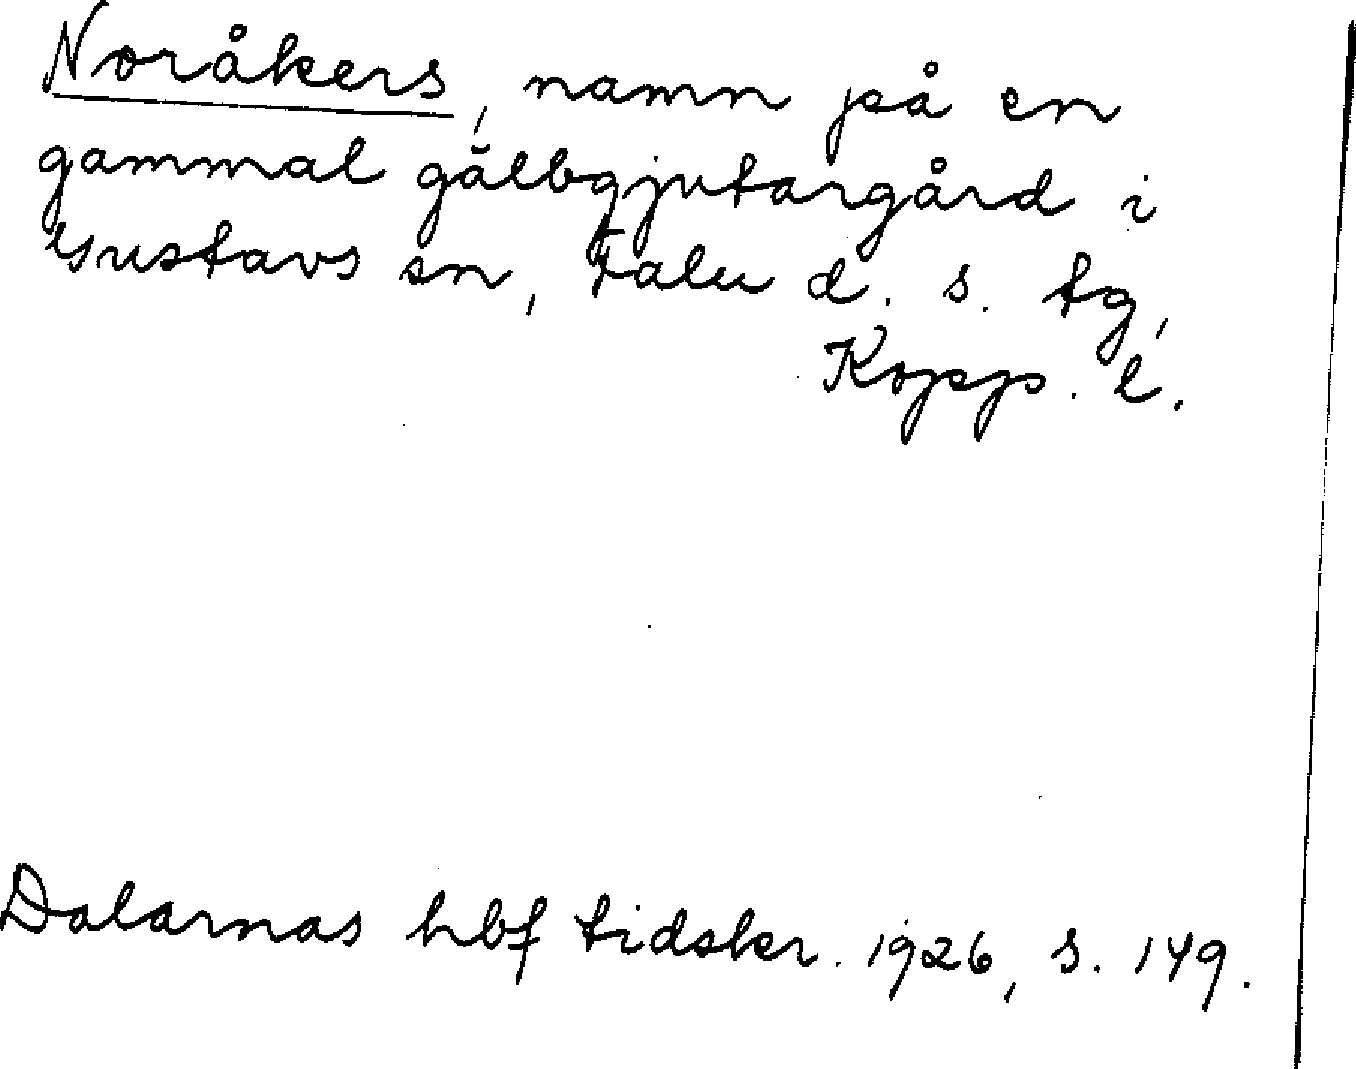 Noråkers, namn på en
gammal gälbgjutargård i
Gustavs sn, Falu d. s. tg,
Kopp. l.
Dalarnas hbf tidskr. 1926, s. 149.